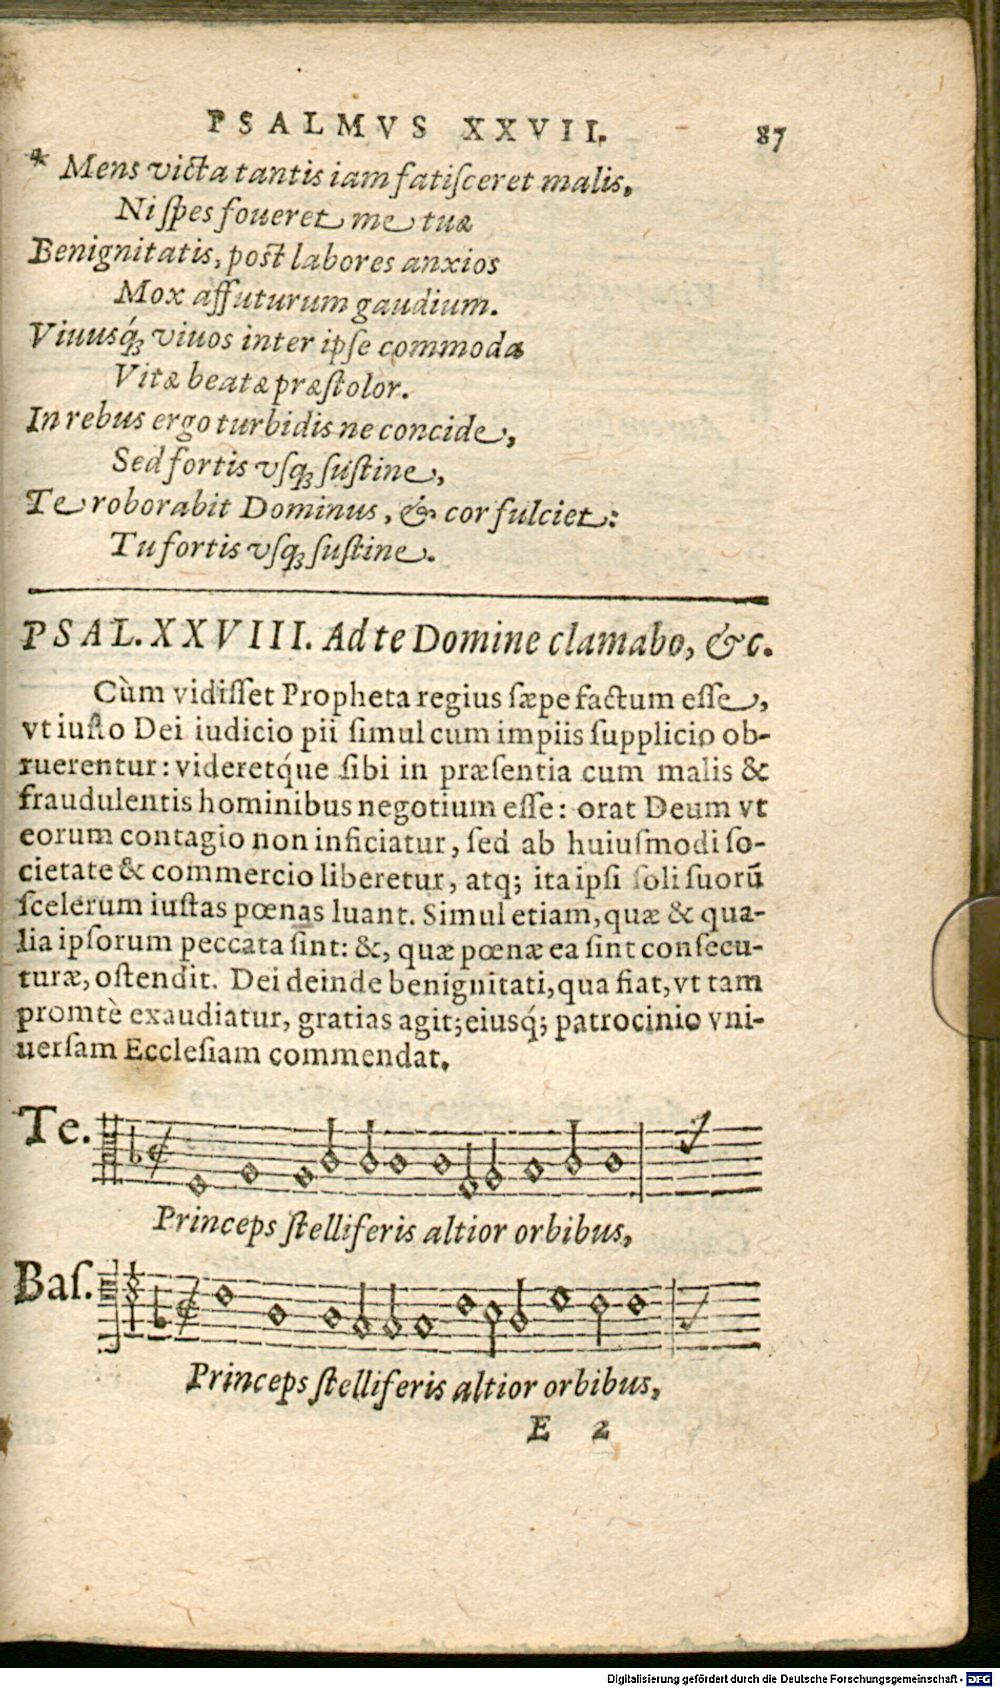 PSALMVS XXVII. 87
* Mens victa tantis iam fatiſceret malis,
Ni ſpes foueret me tuæ
Benignitatis, poſt labores anxios
Mox affuturum gaudium.
Viuusq́; viuos inter ipſe commoda
Vitæ beatæ præſtolor.
In rebus ergo turbidis ne concide,
Sed fortis vſq; ſuſtine,
Te roborabit Dominus, & cor fulciet:
Tu fortis vſq; ſuſtine.
PSAL. XXVIII. Ad te Domine clamabo, &c.
Cùm vidiſſet Propheta regius ſæpe factum eſſe,
vt iuſto Dei iudicio pii ſimul cum impiis ſupplicio ob-
ruerentur: videretq́ue ſibi in præſentia cum malis &
fraudulentis hominibus negotium eſſe: orat Deum vt
eorum contagio non inficiatur, ſed ab huiuſmodi ſo-
cietate & commercio liberetur, atq; ita ipſi ſoli ſuorū
ſcelerum iuſtas pœnas luant. Simul etiam, quæ & qua-
lia ipſorum peccata ſint: &, quæ pœnæ ea ſint conſecu-
turæ, oſtendit. Dei deinde benignitati, qua fiat, vt tam
promtè exaudiatur, gratias agit; eiusq́; patrocinio vni-
uerſam Eccleſiam commendat.
Te.
Princeps ſtelliferis altior orbibus,
Baſ.
Princeps ſtelliferis altior orbibus,
E 2
Digitalisierung gefördert durch die Deutsche Forschungsgemeinschaft - DFG